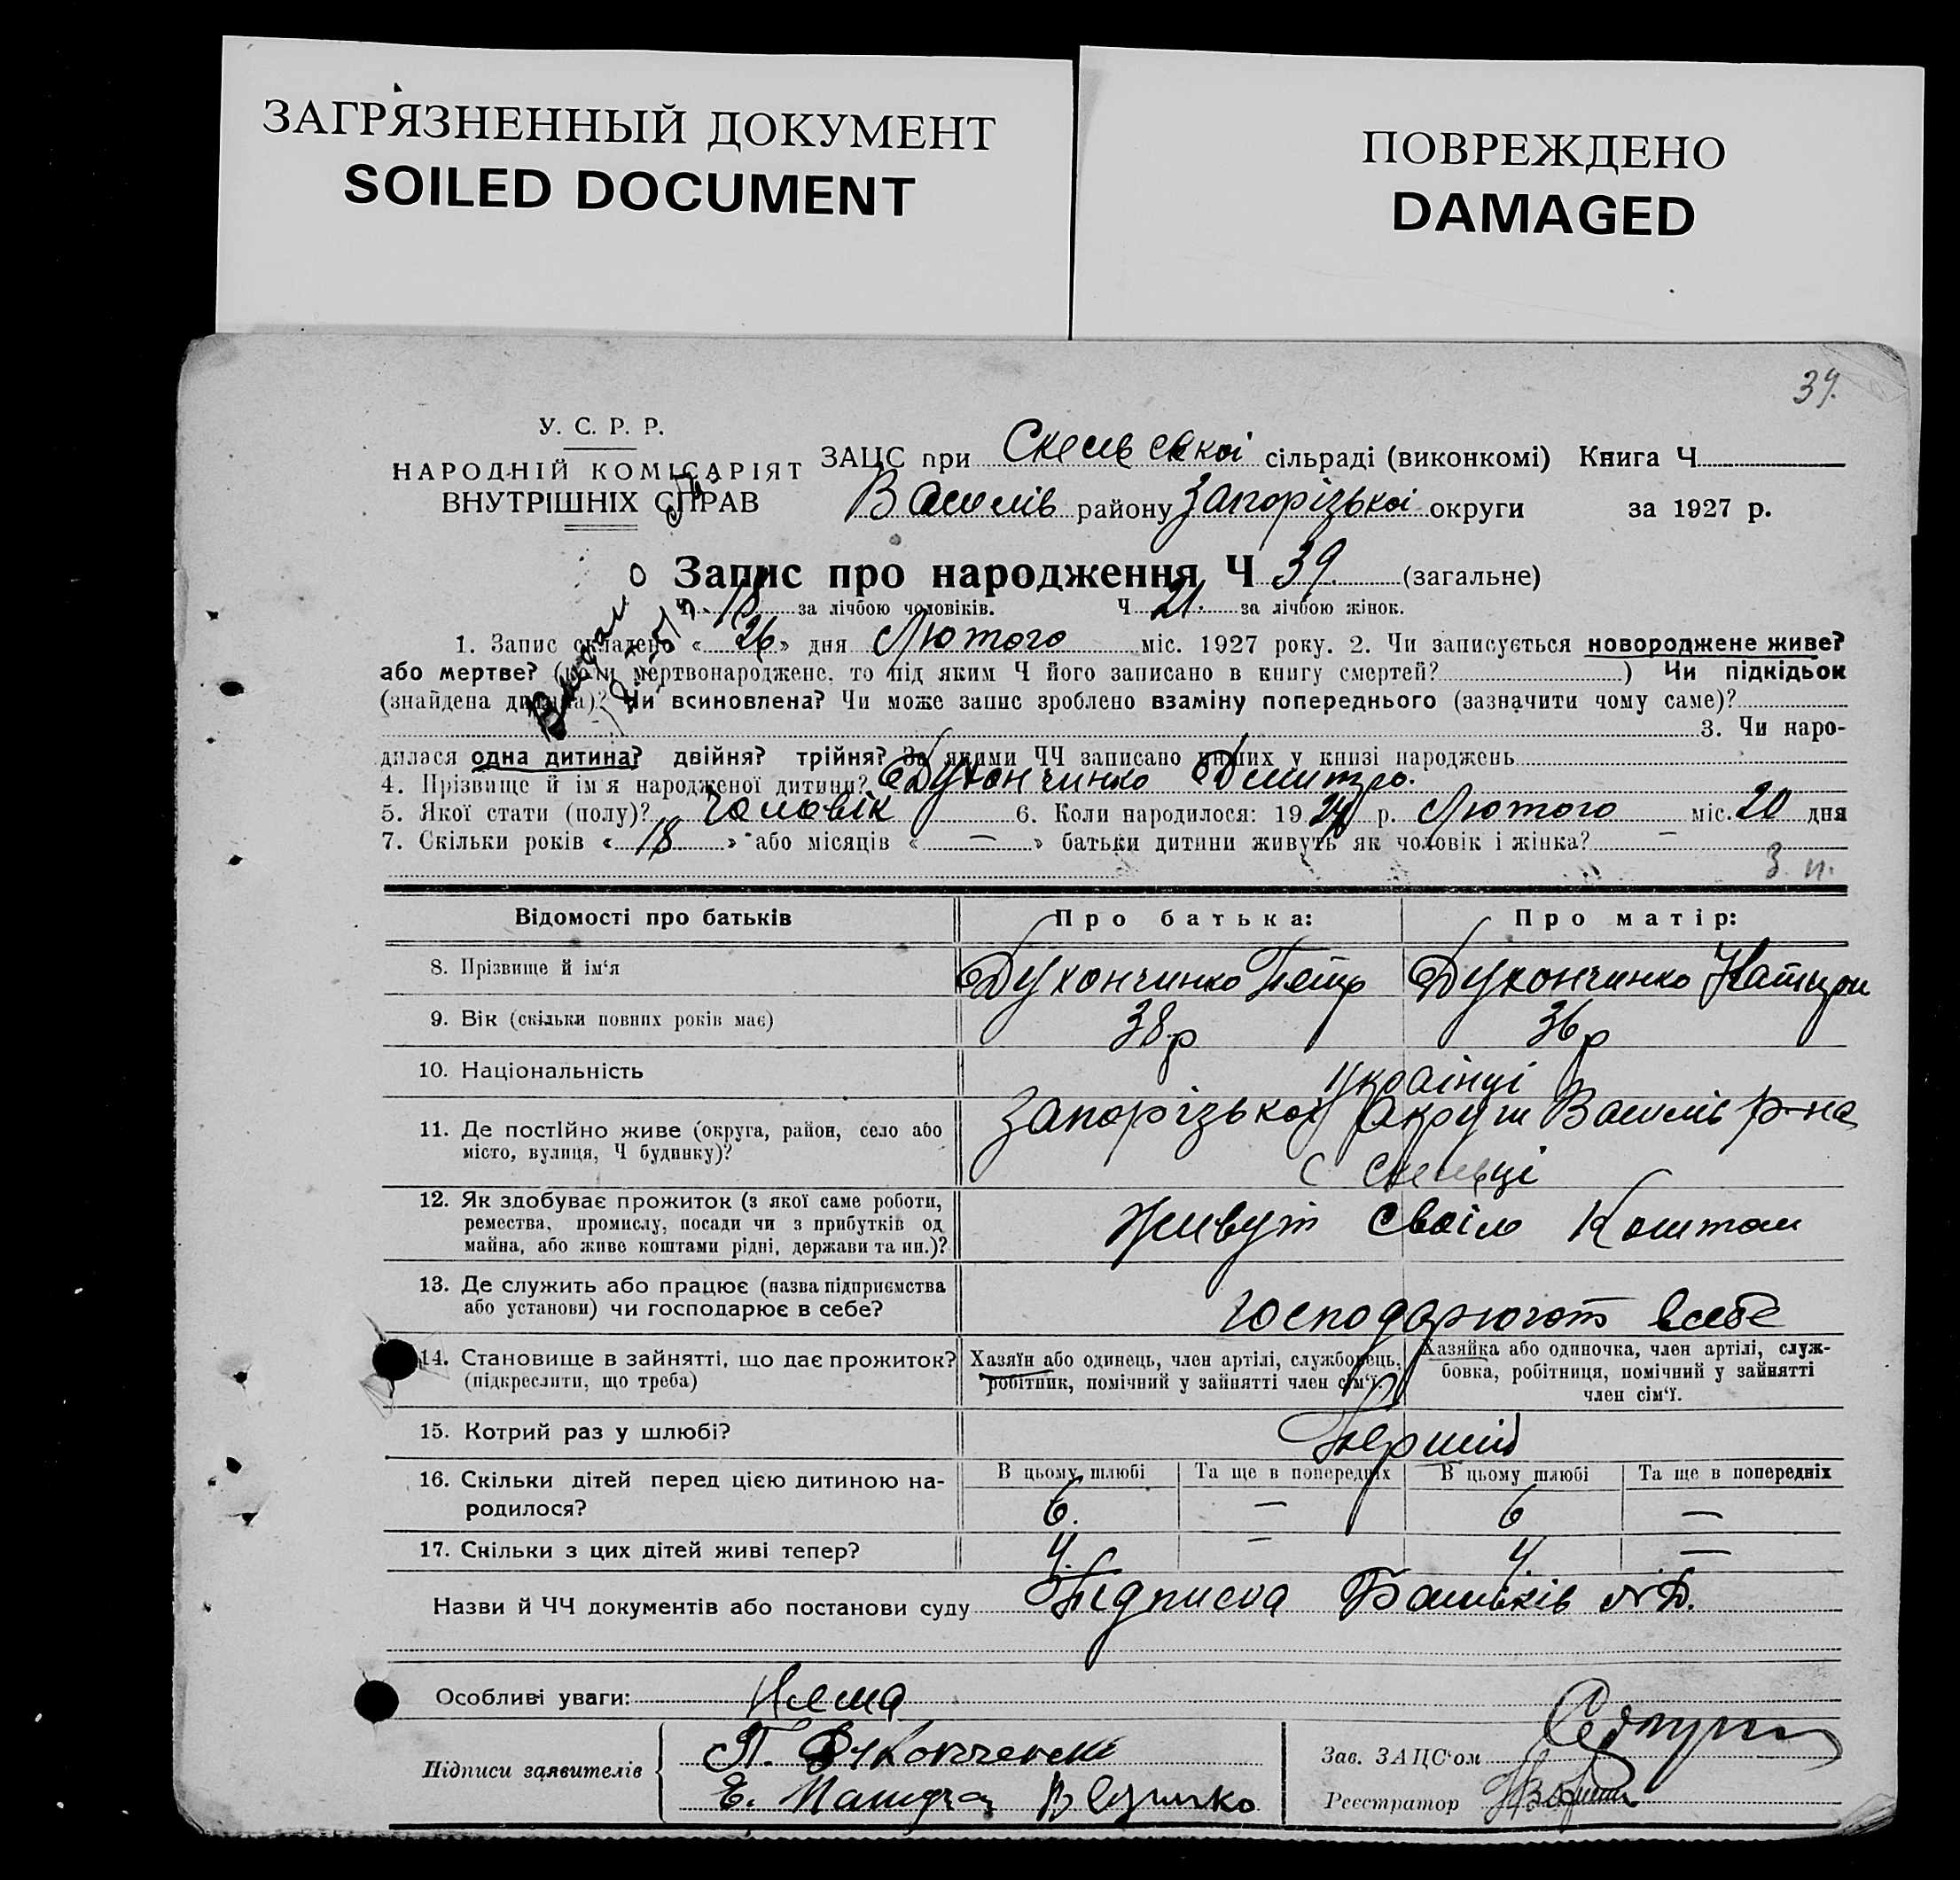 ЗАГРЯЗНЕННЫЙ ДОКУМЕНТ
SOILED DOCUMENT
ПОВРЕЖДЕНО
DAMAGED
39.
У. С. Р. Р.
НАРОДНІЙ КОМІСАРІЯТ
ВНУТРІШНІХ СПРАВ
ЗАЦС при Скельской сільраді (виконкомі) Книга Ч
Василів району Запорізької округи за 1927 р.
Запис про народження Ч 39. (загальне)
Ч. 18 за лічбою чоловіків. Ч 21. за лічбою жінок.
1. Запис складено «26» дня Лютого міс. 1927 року. 2. Чи записується новороджене живе?
або мертве? (коли мертвонароджене, то під яким Ч його записано в книгу смертей? ) Чи підкідьок
(знайдена дитина)? Чи всиновлена? Чи може запис зроблено взаміну попереднього (зазначити чому саме)?
3. Чи наро-
дилася одна дитина? двійня? трійня? За якими ЧЧ записано инших у книзі народжень
4. Прізвище й ім'я народженої дитини? Духончинко Дмитро.
5. Якої стати (полу)? Чоловік 6. Коли народилося: 19 р. Лютого міс. 20 дня
7. Скільки років «18» або місяців « — » батьки дитини живуть як чоловік і жінка? —
З. п.
Відомості про батьків Про батька: Про матір:
8. Прізвище й ім'я Духончинко Петр Духончинко
9. Вік (скільки повних років має) 38 р 36 р
10. Національність Українці
11. Де постійно живе (округа, район, село або
місто, вулиця, Ч будинку)?
Запорізької округи Василів р-на
с Скельці
12. Як здобуває прожиток (з якої саме роботи,
ремества, промислу, посади чи з прибутків од
майна, або живе коштами рідні, держави та ин.)?
Живут своім Коштом
13. Де служить або працює (назва підприємства
або установи) чи господарює в себе?
господарюют всебе
14. Становище в зайнятті, що дає прожиток?
(підкреслити, що треба)
Хазяїн або одинець, член артілі, службовець,
робітник, помічний у зайнятті член сім'ї.
Хазяйка або одиночка, член артілі, служ-
бовка, робітниця, помічний у зайнятті
член сім'ї.
15. Котрий раз у шлюбі? Перший
16. Скільки дітей перед цією дитиною на-
родилося?
В цьому шлюбі Та ще в попередніх В цьому шлюбі Та ще в попередніх
6. — 6 —
17. Скільки з цих дітей живі тепер? 4. — 4. —
Назви й ЧЧ документів або постанови суду Підписка Батьків
Особливі уваги: Нема
Підписи заявителів
П.
Е.
Зав. ЗАЦС'ом
Реєстратор